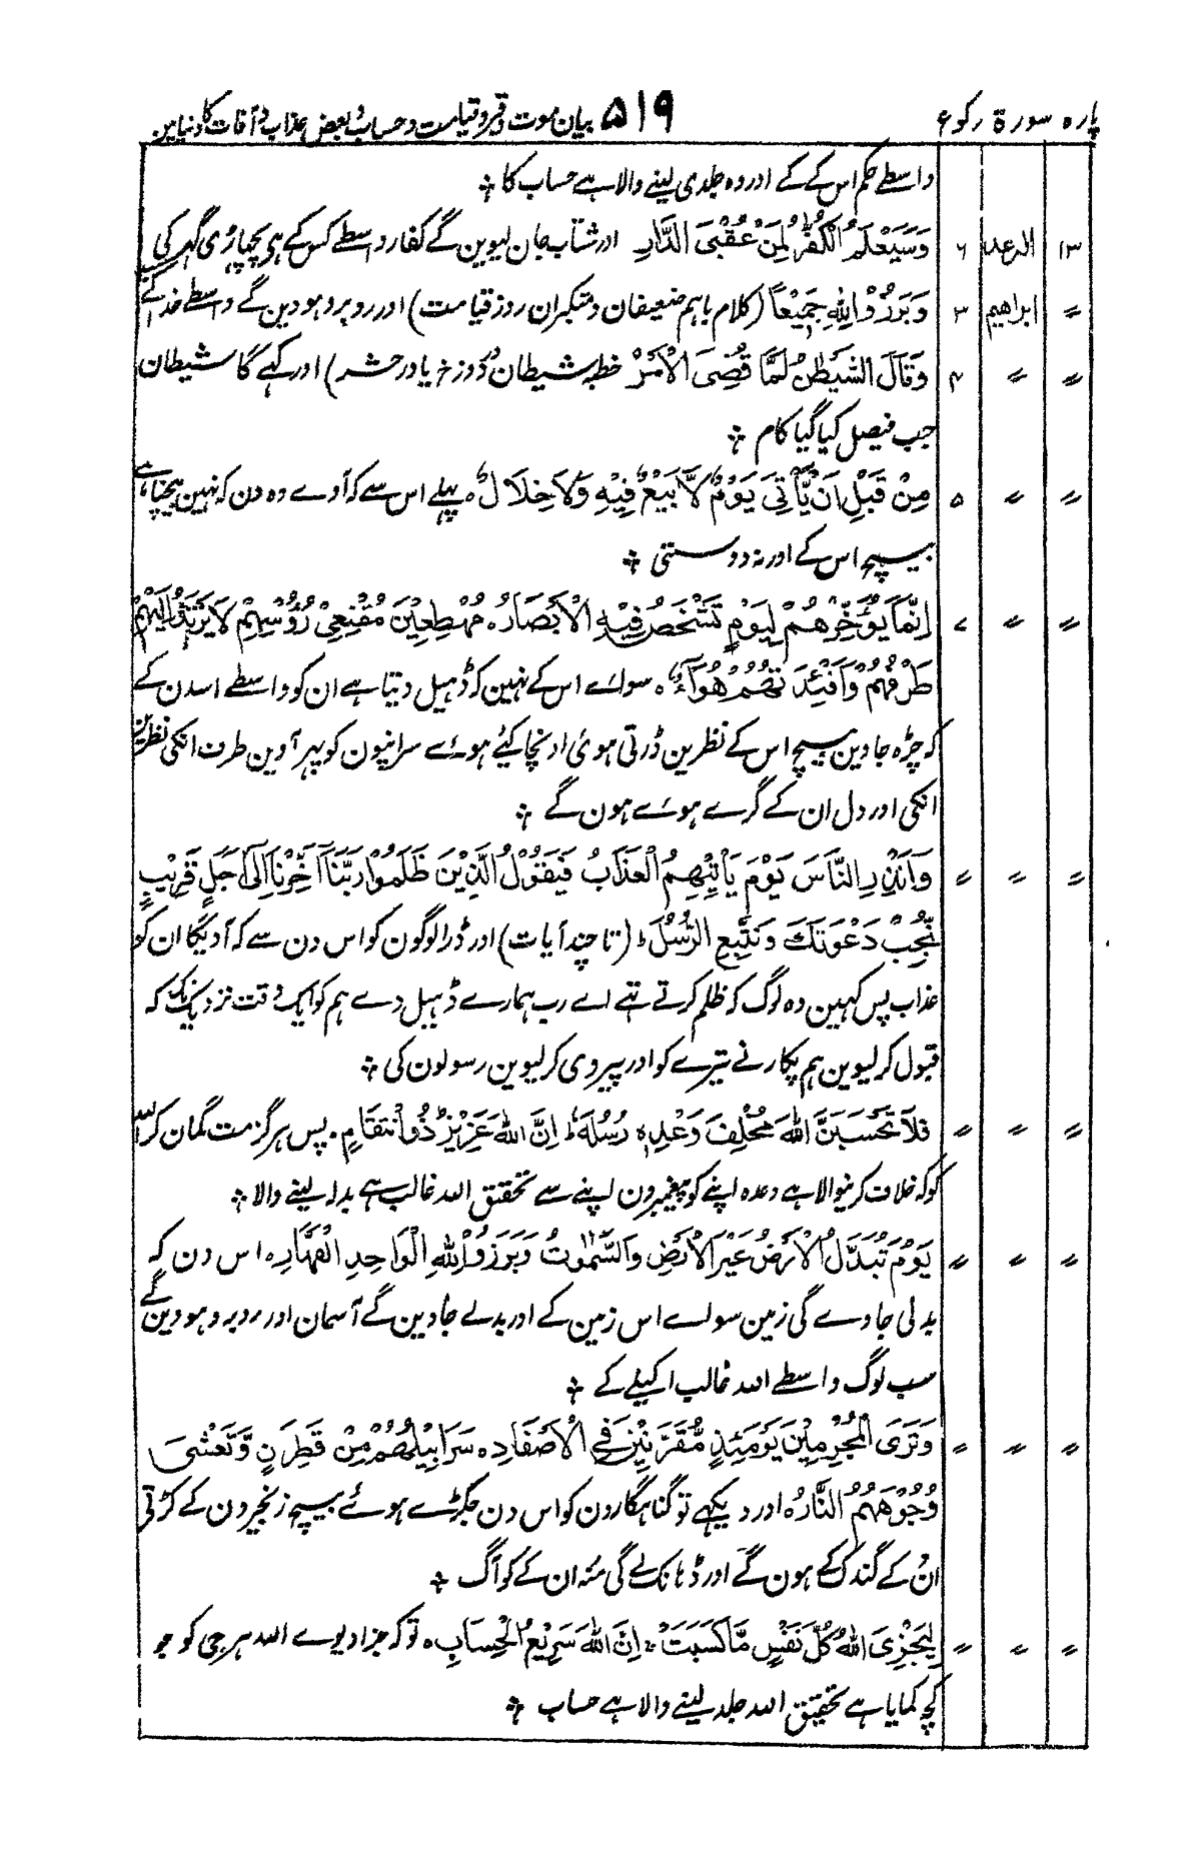 پارہ سورۃ رکوع ۵۱۹ بیان موت و قبر و قیامت و حساب و بعض عذاب و آفات کا دنیا مین
واسطے حکم اس کے کے اور وہ جلدی لینے والا ہے حساب کا ؞
۱۳ الرعد ۶ وَسَيَعْلَمُ الْكُفّٰرُ لِمَنْ عُقْبَى الدَّارِ اور شتاب جان لیوین گے کفار واسطے کس کے ہی پچہاڑی گہر کی
〃 ابراھیم ۳ وَبَرَزُوْا لِلّٰهِ جَمِيْعًا (کلام باہم ضعیفان و متکبران روز قیامت) اور روبرو ہووین گے واسطے خدا کے
〃 〃 ۴ وَقَالَ الشَّيْطٰنُ لَمَّا قُضِىَ الْاَمْرُ خطبہ شیطان در دوزخ یا در حشر) اور کہے گا شیطان
جب فیصل کیا گیا کام ؞
〃 〃 ۵ مِنْ قَبْلِ اَنْ يَّاْتِىَ يَوْمٌ لَّا بَيْعٌ فِيْهِ وَلَا خِلَالٌ ہ پہلے اس سے کہ آوے وہ دن کہ نہین بیچنا ہے
بیچ اس کے اور نہ دوستی ؞
〃 〃 ۷ اِنَّمَا يُؤَخِّرُهُمْ لِيَوْمٍ تَشْخَصُ فِيْهِ الْاَبْصَارُ ہ مُهْطِعِيْنَ مُقْنِعِىْ رُؤُسِهِمْ لَا يَرْتَدُّ اِلَيْهِمْ
طَرْفُهُمْ وَاَفْئِدَتُهُمْ هَوَآءٌ ہ سواے اس کے نہین کہ ڈہیل دیتا ہے ان کو واسطے اسدن کے
کہ چڑہ جاوین بیچ اس کے نظرین ڈرتی ہوئ اونچا کیئے ہوۓ سر اپنون کو پہر آوین طرف انکی نظرین
انکی اور دل ان کے گرے ہوۓ ہون گے ؞
〃 〃 〃 وَاَنْذِرِ النَّاسَ يَوْمَ يَاْتِيْهِمُ الْعَذَابُ فَيَقُوْلُ الَّذِيْنَ ظَلَمُوْا رَبَّنَا اَخِّرْنَا اِلٰٓى اَجَلٍ قَرِيْبٍ
نُّجِبْ دَعْوَتَكَ وَنَتَّبِعِ الرُّسُلَ ط (تا چند آیات) اور ڈرا لوگون کو اس دن سے کہ آویگا ان کو
عذاب پس کہین وہ لوگ کہ ظلم کرتے تہے اے رب ہمارے ڈہیل دے ہم کو ایک وقت نزدیک تک کہ
قبول کر لیوین ہم پکارنے تیرے کو اور پیروی کر لیوین رسولون کی ؞
〃 〃 〃 فَلَا تَحْسَبَنَّ اللّٰهَ مُخْلِفَ وَعْدِهٖ رُسُلَهٗ ط اِنَّ اللّٰهَ عَزِيْزٌ ذُو انْتِقَامٍ ۔ پس ہرگز مت گمان کر اللہ
کو کہ خلاف کرنیوالا ہے وعدہ اپنے کو پیغمبرون اپنے سے تحقیق اللہ غالب ہے بدلا لینے والا ؞
〃 〃 〃 يَوْمَ تُبَدَّلُ الْاَرْضُ غَيْرَ الْاَرْضِ وَالسَّمٰوٰتُ وَبَرَزُوْا لِلّٰهِ الْوَاحِدِ الْقَهَّارِ ہ اس دن کہ
بدلی جاوے گی زمین سواے اس زمین کے اور بدلے جاوین گے آسمان اور روبرو ہووین گے
سب لوگ واسطے اللہ غالب اکیلے کے ؞
〃 〃 〃 وَتَرَى الْمُجْرِمِيْنَ يَوْمَئِذٍ مُّقَرَّنِيْنَ فِى الْاَصْفَادِ ہ سَرَابِيْلُهُمْ مِّنْ قَطِرَانٍ وَّتَغْشٰى
وُجُوْهَهُمُ النَّارُ ہ اور دیکہے تو گناہگارون کو اس دن جکڑے ہوئے بیچ زنجیرون کے کرتی
ان کے گندک کے ہون گے اور ڈہانک لے گی منہ ان کے کو آگ ؞
〃 〃 〃 لِيَجْزِىَ اللّٰهُ كُلَّ نَفْسٍ مَّا كَسَبَتْ ط اِنَّ اللّٰهَ سَرِيْعُ الْحِسَابِ ہ تو کہ جزا دیوے اللہ ہر جی کو جو
کچہ کمایا ہے تحقیق اللہ جلد لینے والا ہے حساب ؞